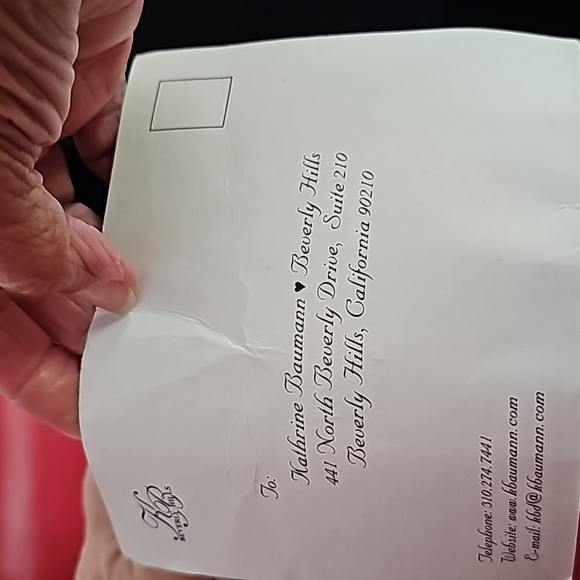 KB
BEVERLY HILLS
To:
Kathrine Baumann ♥ Beverly Hills
441 North Beverly Drive, Suite 210
Beverly Hills, California 90210
Telephone: 310.274.7441
Website: www.kbaumann.com
E-mail: kbd@kbaumann.com